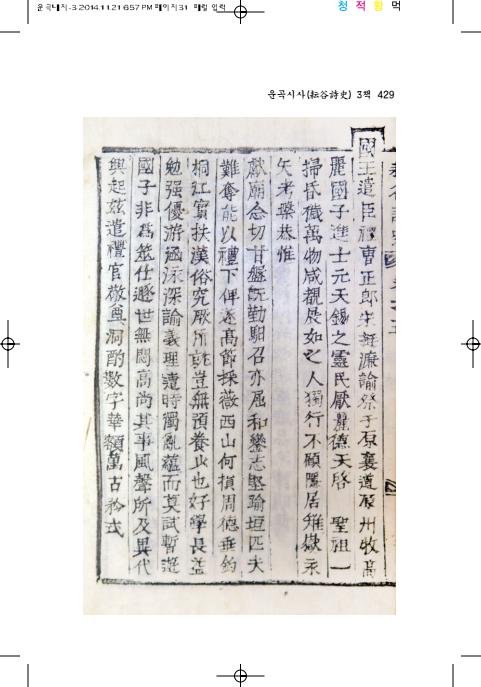 운곡대지-3 2014.11.21 6:57 PM 페이지31 매월 입력
청 적 황 먹
운곡시사(耘谷詩史) 3책 429
國王遣臣禮曹正郎宋挺濂諭祭于原襄道原州牧高
麗國子進士元天錫之靈民厭麗德天啓 聖祖一
掃昏穢萬物咸覩展如之人獨行不顧隱居雉嶽永
矢考槃恭惟
獻廟念切甘盤旣勤馹召亦屈和鑾志堅踰垣匹夫
難奪能以禮下俾遂高節採薇西山何損周德垂釣
桐江實扶漢俗究厥所就豈無預養少也好學長益
勉强優游涵泳深諭義理遭時濁亂蘊而莫試暫遊
國子非爲筮仕遯世無悶高尙其事風聲所及異代
興起玆遣禮官敬奠泂酌數字華額萬古矜式